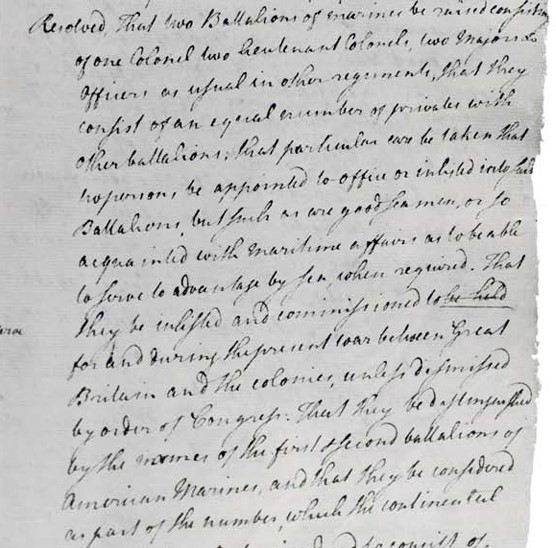 Resolved, That two Battalions of marines be raised consisting
of one Colonel two lieutenant Colonels, two Majors &
Officers as usual in other regiments, that they
consist of an equal number of privates with
other battalions; that particular care be taken that
no persons be appointed to office or inlisted into said
Battalions, but such as are good seamen, or so
acquainted with maritime affairs as to be able
to serve to advantage by sea, when required. That
they be inlisted and commissioned to be held
for and during the present war between Great
Britain and the colonies, unless dismissed
by order of Congress. That they be distinguished
by the names of the first & second battalions of
American Marines, and that they be considered
as part of the number, which the continental
to consist of